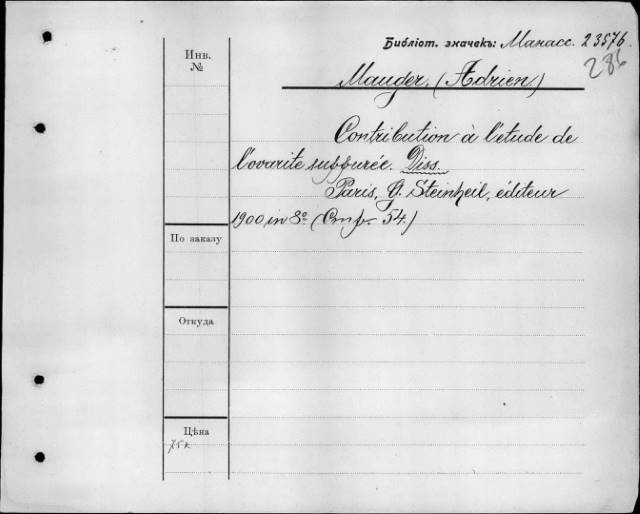 Библіот. значекъ: Манасс. 23576.
286
Инв.
№
Mauger. (Adrien)
Contribution à l'étude de
l'ovarite suppurée. Diss.
Paris, G. Steinheil, éditeur
1900, in 8º (Стр. 54.)
По заказу
Откуда
Цѣна
75 к